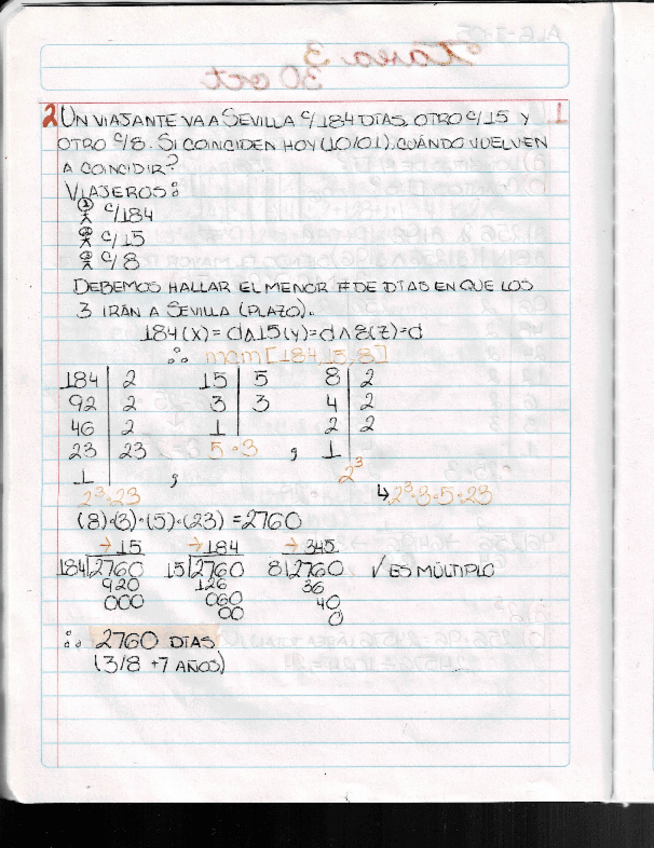 Tarea 3
30 oct
2 UN VIAJANTE VA A SEVILLA C/184 DÍAS, OTRO C/15 Y
OTRO C/8. SI COINCIDEN HOY (10/01), CUÁNDO VUELVEN
A COINCIDIR?
VIAJEROS:
1 C/184
2 C/15
3 C/8
DEBEMOS HALLAR EL MENOR # DE DÍAS EN QUE LOS
3 IRÁN A SEVILLA (PLAZO).
184(X)=d∧15(Y)=d∧8(Z)=d
∴ mcm[184,15,8]
184 | 2 15 | 5 8 | 2
92 | 2 3 | 3 4 | 2
46 | 2 1 2 | 2
23 | 23 5·3 , 1
1 , 2³
2³·23 ↳2³·3·5·23
(8)·(3)·(5)·(23)=2760
→15 →184 →345
184|2760 15|2760 8|2760 ✓ ES MÚLTIPLO
920 126 36
000 060 40
00 0
∴ 2760 DÍAS
(3/8 +7 AÑOS)